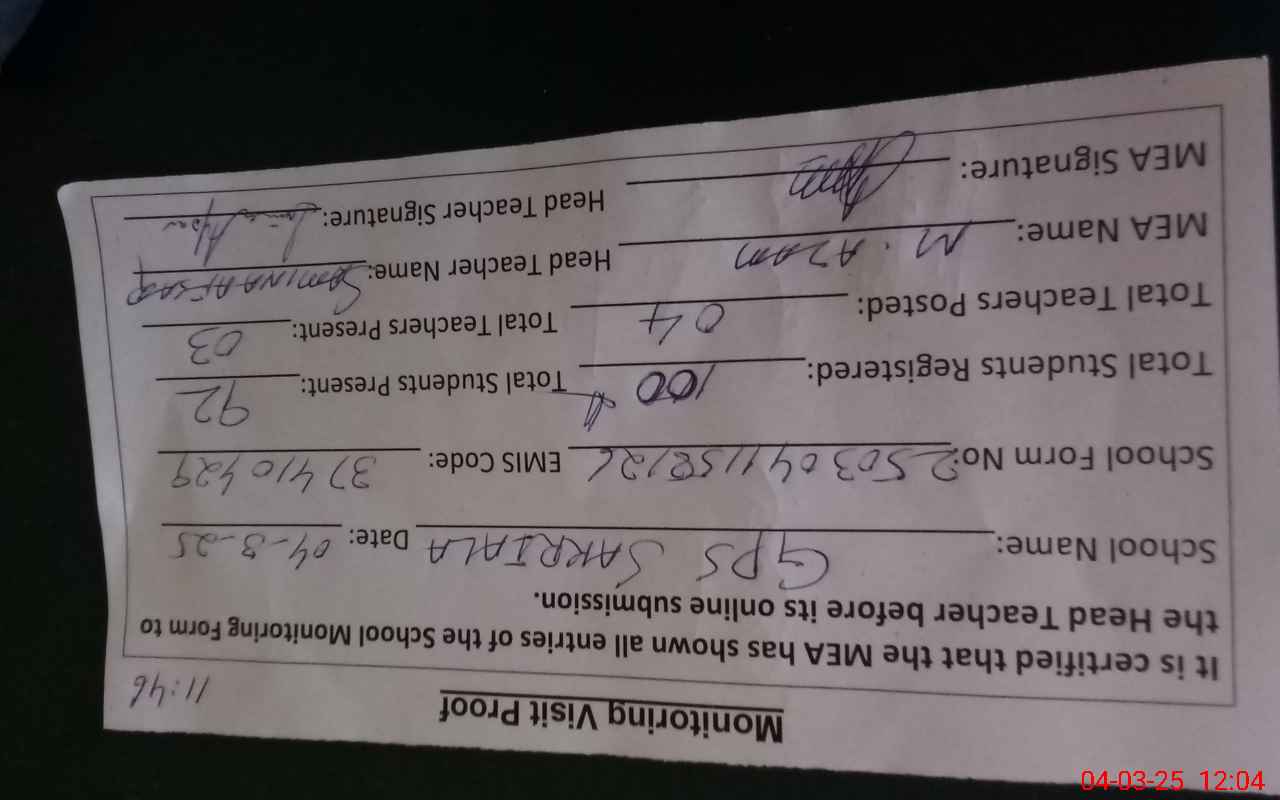 Monitoring Visit Proof
11:46
It is certified that the MEA has shown all entries of the School Monitoring Form to
the Head Teacher before its online submission.
School Name: GPS SAKRIALA Date: 04-3-25
School Form No: EMIS Code: 37410429
Total Students Registered: 100 Total Students Present: 92
Total Teachers Posted: 04 Total Teachers Present: 03
MEA Name: M. AZAM Head Teacher Name: SAMINA AFSAR
MEA Signature: Head Teacher Signature:
04-03-25 12:04